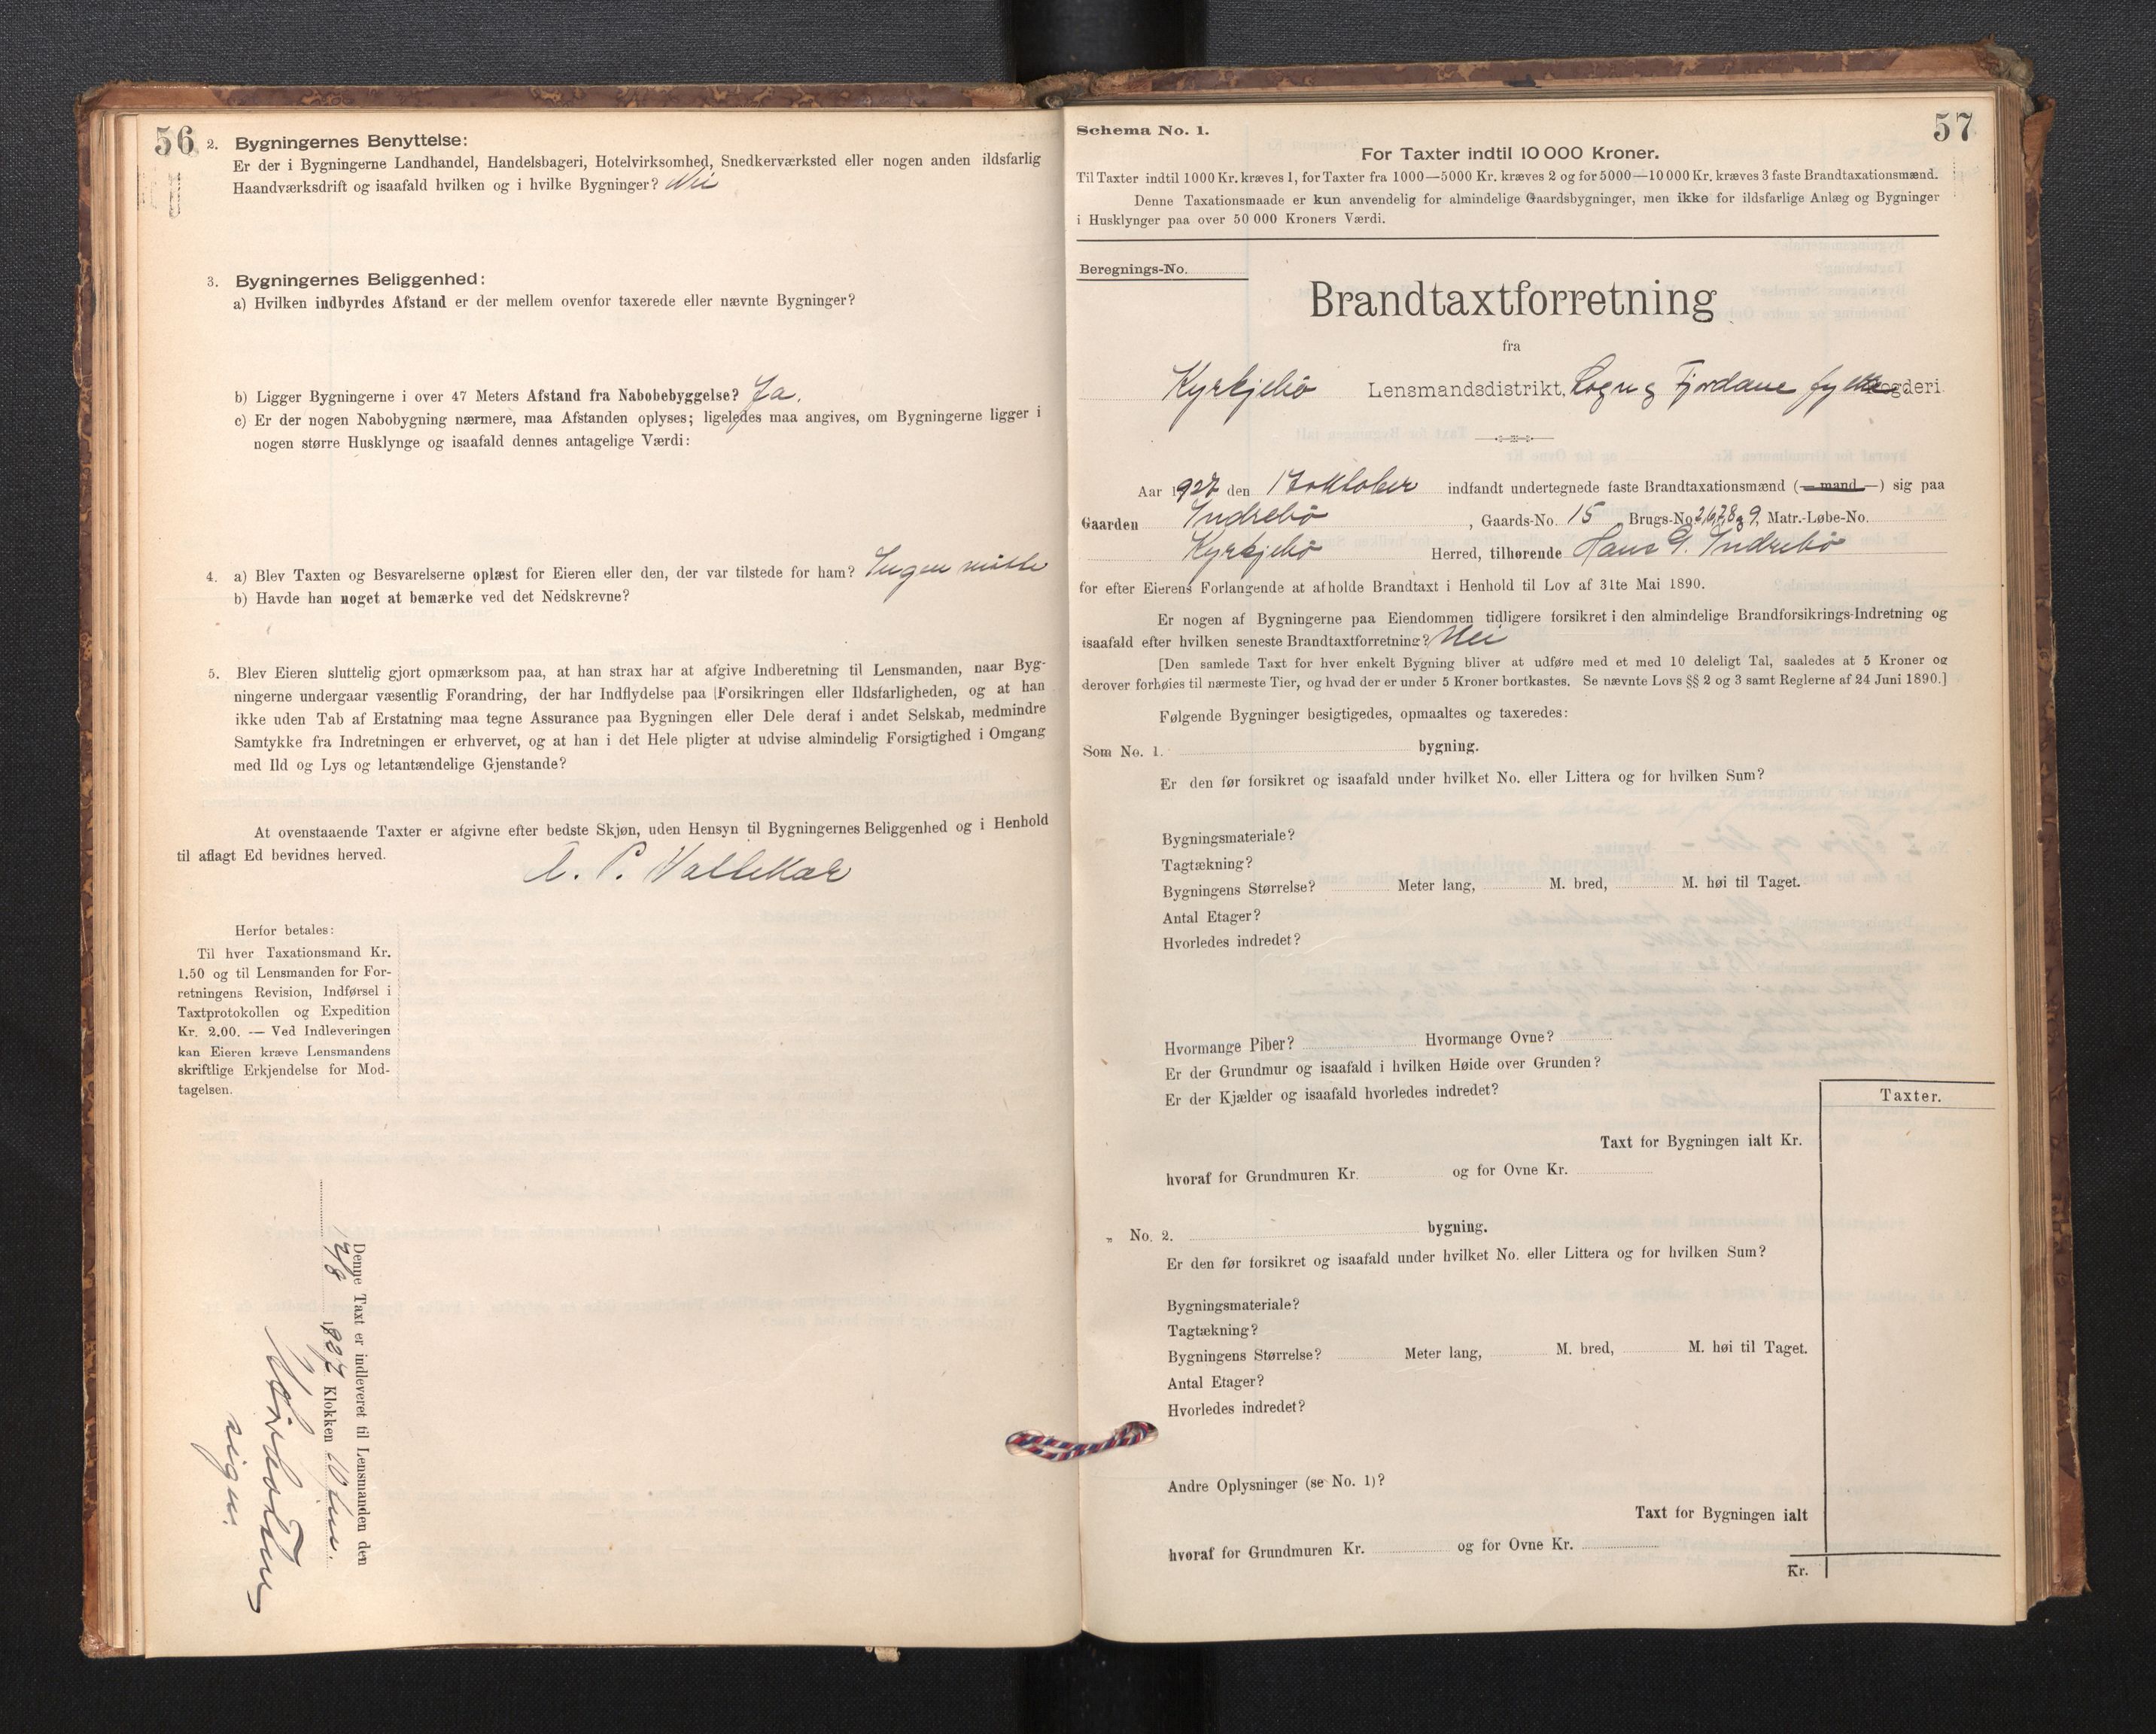 56
2. Bygningernes Benyttelse:
Er der i Bygningerne Landhandel, Handelsbageri, Hotelvirksomhed, Snedkerværksted eller nogen anden ildsfarlig
Haandværksdrift og isaafald hvilken og i hvilke Bygninger? Nei
3. Bygningernes Beliggenhed:
a) Hvilken indbyrdes Afstand er der mellem ovenfor taxerede eller nævnte Bygninger?
b) Ligger Bygningerne i over 47 Meters Afstand fra Nabobebyggelse? Ja.
c) Er der nogen Nabobygning nærmere, maa Afstanden oplyses; ligeledes maa angives, om Bygningerne ligger i
nogen større Husklynge og isaafald dennes antagelige Værdi:
4. a) Blev Taxten og Besvarelserne oplæst for Eieren eller den, der var tilstede for ham? Ingen møtte
b) Havde han noget at bemærke ved det Nedskrevne?
5. Blev Eieren sluttelig gjort opmærksom paa, at han strax har at afgive Indberetning til Lensmanden, naar Byg-
ningerne undergaar væsentlig Forandring, der har Indflydelse paa Forsikringen eller Ildsfarligheden, og at han
ikke uden Tab af Erstatning maa tegne Assurance paa Bygningen eller Dele deraf i andet Selskab, medmindre
Samtykke fra Indretningen er erhvervet, og at han i det Hele pligter at udvise almindelig Forsigtighed i Omgang
med Ild og Lys og letantændelige Gjenstande?
At ovenstaaende Taxter er afgivne efter bedste Skjøn, uden Hensyn til Bygningernes Beliggenhed og i Henhold
til aflagt Ed bevidnes herved.
A. P. Vallekar
Herfor betales:
Til hver Taxationsmand Kr.
1.50 og til Lensmanden for For-
retningens Revision, Indførsel i
Taxtprotokollen og Expedition
Kr. 2.00. — Ved Indleveringen
kan Eieren kræve Lensmandens
skriftlige Erkjendelse for Mod-
tagelsen.
Denne Taxt er indleveret til Lensmanden den
1927 Klokken 10
sign.
57
Schema No. 1.
For Taxter indtil 10 000 Kroner.
Til Taxter indtil 1000 Kr. kræves 1, for Taxter fra 1000—5000 Kr. kræves 2 og for 5000—10 000 Kr. kræves 3 faste Brandtaxationsmænd.
Denne Taxationsmaade er kun anvendelig for almindelige Gaardsbygninger, men ikke for ildsfarlige Anlæg og Bygninger
i Husklynger paa over 50 000 Kroners Værdi.
Beregnings-No.
Brandtaxtforretning
fra
Kyrkjebø Lensmandsdistrikt, Sogn og Fjordane fylke ogderi
Aar 1927 den 17 oktober indfandt undertegnede faste Brandtaxationsmænd (— mand —) sig paa
Gaarden Indrebø, Gaards-No. 15 Brugs-No. 2,6,7,8 og 9, Matr.-Løbe-No.
Kyrkjebø Herred, tilhørende Hans G. Indrebø
for efter Eierens Forlangende at afholde Brandtaxt i Henhold til Lov af 31te Mai 1890.
Er nogen af Bygningerne paa Eiendommen tidligere forsikret i den almindelige Brandforsikrings-Indretning og
isaafald efter hvilken seneste Brandtaxtforretning? Nei
[Den samlede Taxt for hver enkelt Bygning bliver at udføre med et med 10 deleligt Tal, saaledes at 5 Kroner og
derover forhøies til nærmeste Tier, og hvad der er under 5 Kroner bortkastes. Se nævnte Lovs §§ 2 og 3 samt Reglerne af 24 Juni 1890.]
Følgende Bygninger besigtigedes, opmaaltes og taxeredes:
Som No. 1. bygning.
Er den før forsikret og isaafald under hvilket No. eller Littera og for hvilken Sum?
Bygningsmateriale?
Tagtækning?
Bygningens Størrelse? Meter lang, M. bred, M. høi til Taget.
Antal Etager?
Hvorledes indredet?
Hvormange Piber? Hvormange Ovne?
Er der Grundmur og isaafald i hvilken Høide over Grunden?
Er der Kjælder og isaafald hvorledes indredet?
Taxter.
Taxt for Bygningen ialt Kr.
hvoraf for Grundmuren Kr. og for Ovne Kr.
„ No. 2. bygning.
Er den før forsikret og isaafald under hvilket No. eller Littera og for hvilken Sum?
Bygningsmateriale?
Tagtækning?
Bygningens Størrelse? Meter lang, M. bred, M. høi til Taget.
Antal Etager?
Hvorledes indredet?
Andre Oplysninger (se No. 1)?
Taxt for Bygningen ialt
hvoraf for Grundmuren Kr. og for Ovne Kr.
Kr.